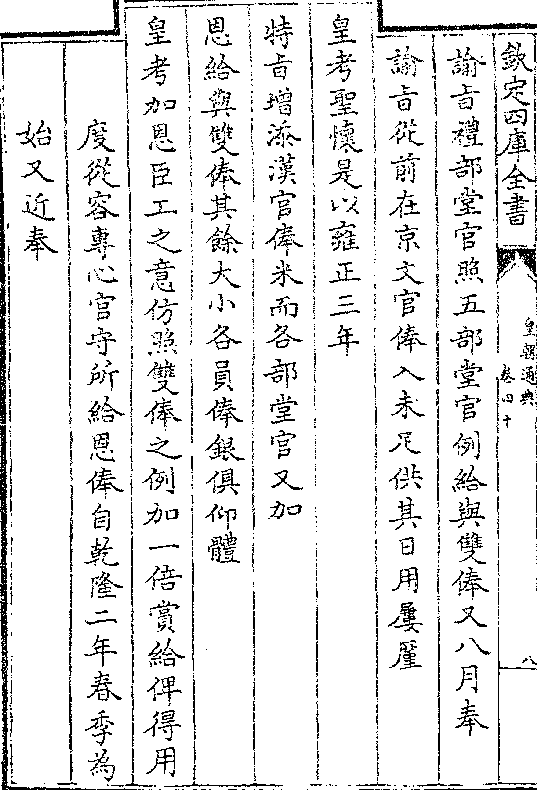 欽定四庫全書
皇朝通典
卷四十
八
諭旨禮部堂官照五部堂官例給與雙俸又八月奉
諭旨從前在京文官俸入未足供其日用屢厪
皇考聖懷是以雍正三年
特旨增添漢官俸米而各部堂官又加
恩給與雙俸其餘大小各員俸銀俱仰體
皇考加恩臣工之意仿照雙俸之例加一倍賞給俾得用
度從容專心官守所給恩俸自乾隆二年春季為
始又近奉